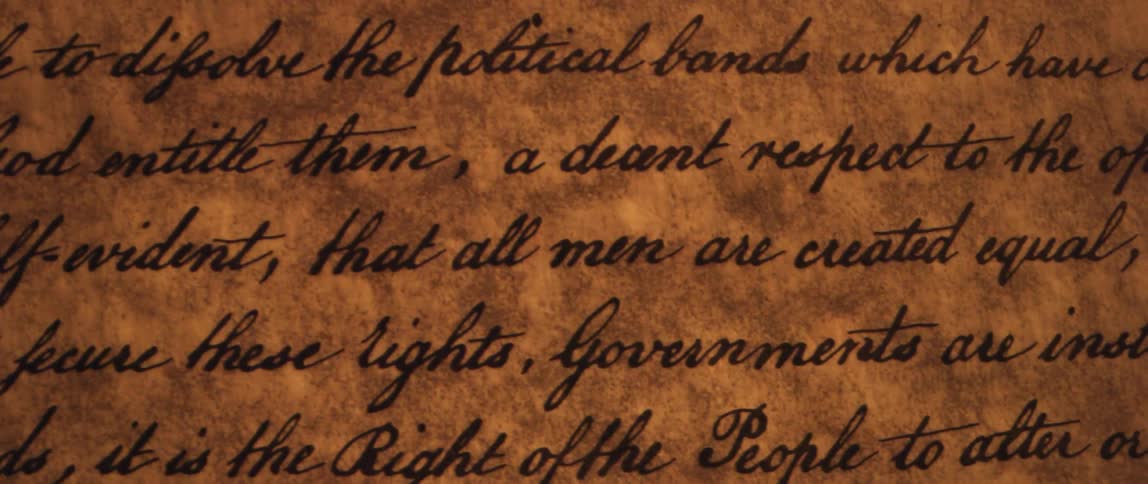 to diſsolve the political bands which have
entitle them, a decent respect to the
evident, that all men are created equal,
ſecure these rights, Governments are
it is the Right of the People to alter or